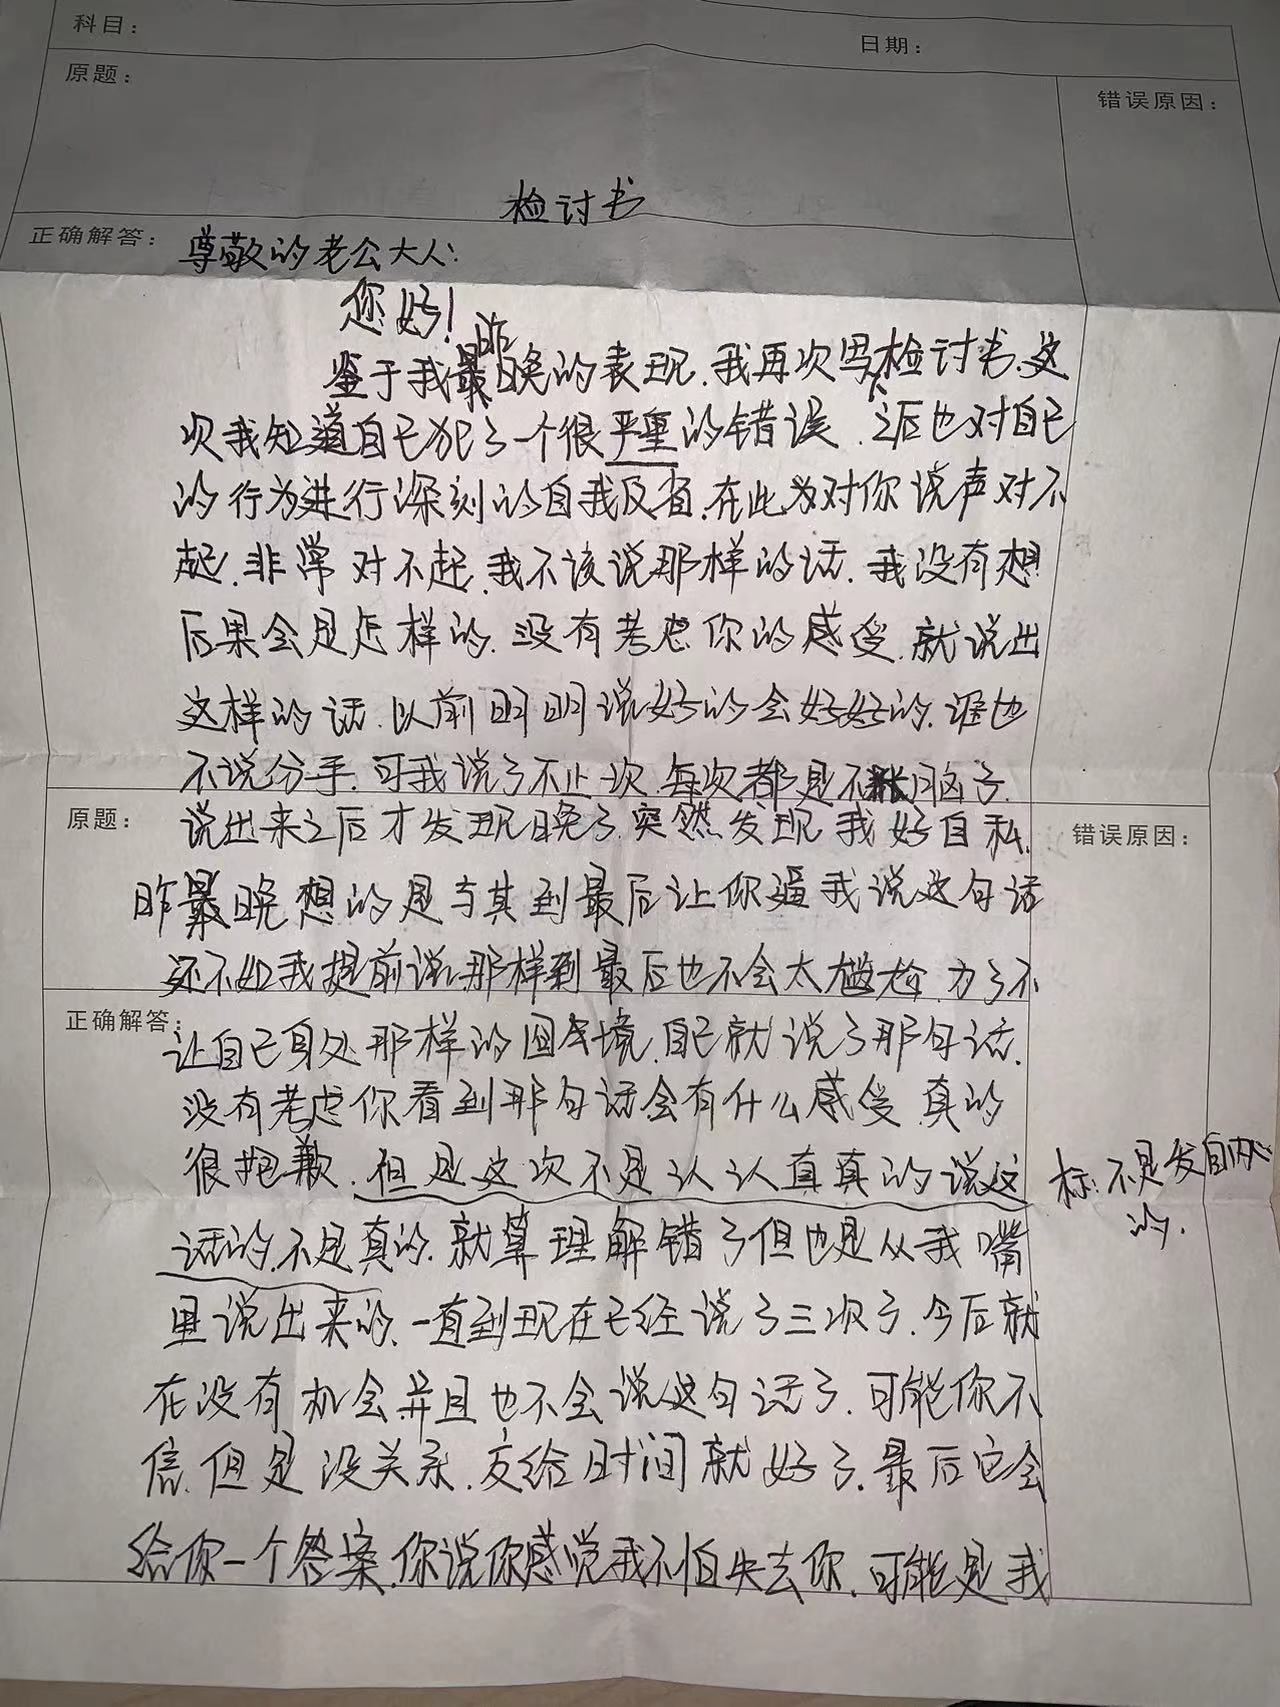 科目：
日期：
原题：
错误原因：
检讨书
正确解答：
尊敬的老公大人：
您好！
鉴于我昨晚的表现，我再次写下检讨书，这
次我知道自己犯了一个很严重的错误，之后也对自己
的行为进行深刻的自我反省，在此为对你说声对不
起，非常对不起，我不该说那样的话，我没有想
后果会是怎样的，没有考虑你的感受，就说出
这样的话，以前明明说好的会好好的，谁也
不说分手，可我说了不止一次，每次都是不长脑子，
原题：
说出来之后才发现晚了，突然发现我好自私，
错误原因：
昨晚想的是与其到最后让你逼我说这句话
还不如我提前说，那样到最后也不会太尴尬，为了不
正确解答：
让自己身处那样的困境，自己就说了那句话，
没有考虑你看到那句话会有什么感受，真的
很抱歉，但是这次不是认认真真的说这
标：不是发自内心
的，
话的，不是真的，就算理解错了但也是从我嘴
里说出来的，一直到现在已经说了三次了，今后就
在没有机会并且也不会说这句话了，可能你不
信，但是没关系，交给时间就好了，最后它会
给你一个答案，你说你感觉我不怕失去你，可能是我